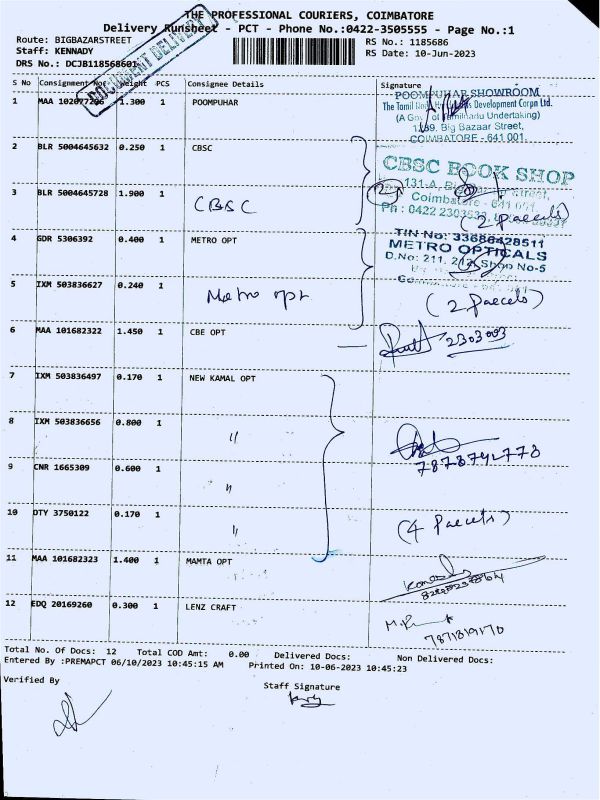 THE PROFESSIONAL COURIERS, COIMBATORE
Delivery Runsheet - PCT - Phone No.:0422-3505555 - Page No.:1
Route: BIGBAZARSTREET
Staff: KENNADY
DRS No.: DCJB118568601
RS No.: 1185686
RS Date: 10-Jun-2023
DOCUMENT DELIVERY
S No Consignment No. Weight PCS Consignee Details Signature
1 MAA 102077206 1.300 1 POOMPUHAR
POOMPUHAR SHOWROOM
The Tamil Development Corpn Ltd.
(A Gov of Tamilnadu Undertaking)
Big Bazaar Street,
COIMBATORE - 641 001.
2 BLR 5004645632 0.250 1 CBSC
CBSC BOOK SHOP
3 BLR 5004645728 1.900 1 CBSC
131-A, Street,
Coimbatore - 641 001.
(2 parcels)
4 GDR 5306392 0.400 1 METRO OPT
TIN No: 33686428511
METRO OPTICALS
D.No: 211, 212, Shop No-5
5 IXM 503836627 0.240 1 Metro opt
(2 parcels)
6 MAA 101682322 1.450 1 CBE OPT
2303003
7 IXM 503836497 0.170 1 NEW KAMAL OPT
8 IXM 503836656 0.800 1 "
7878792778
9 CNR 1665309 0.600 1 "
10 DTY 3750122 0.170 1 "
(4 parcels)
11 MAA 101682323 1.400 1 MAMTA OPT
12 EDQ 20169260 0.300 1 LENZ CRAFT
7871819170
Total No. Of Docs: 12 Total COD Amt: 0.00 Delivered Docs: Non Delivered Docs:
Entered By :PREMAPCT 06/10/2023 10:45:15 AM Printed On: 10-06-2023 10:45:23
Verified By
Staff Signature